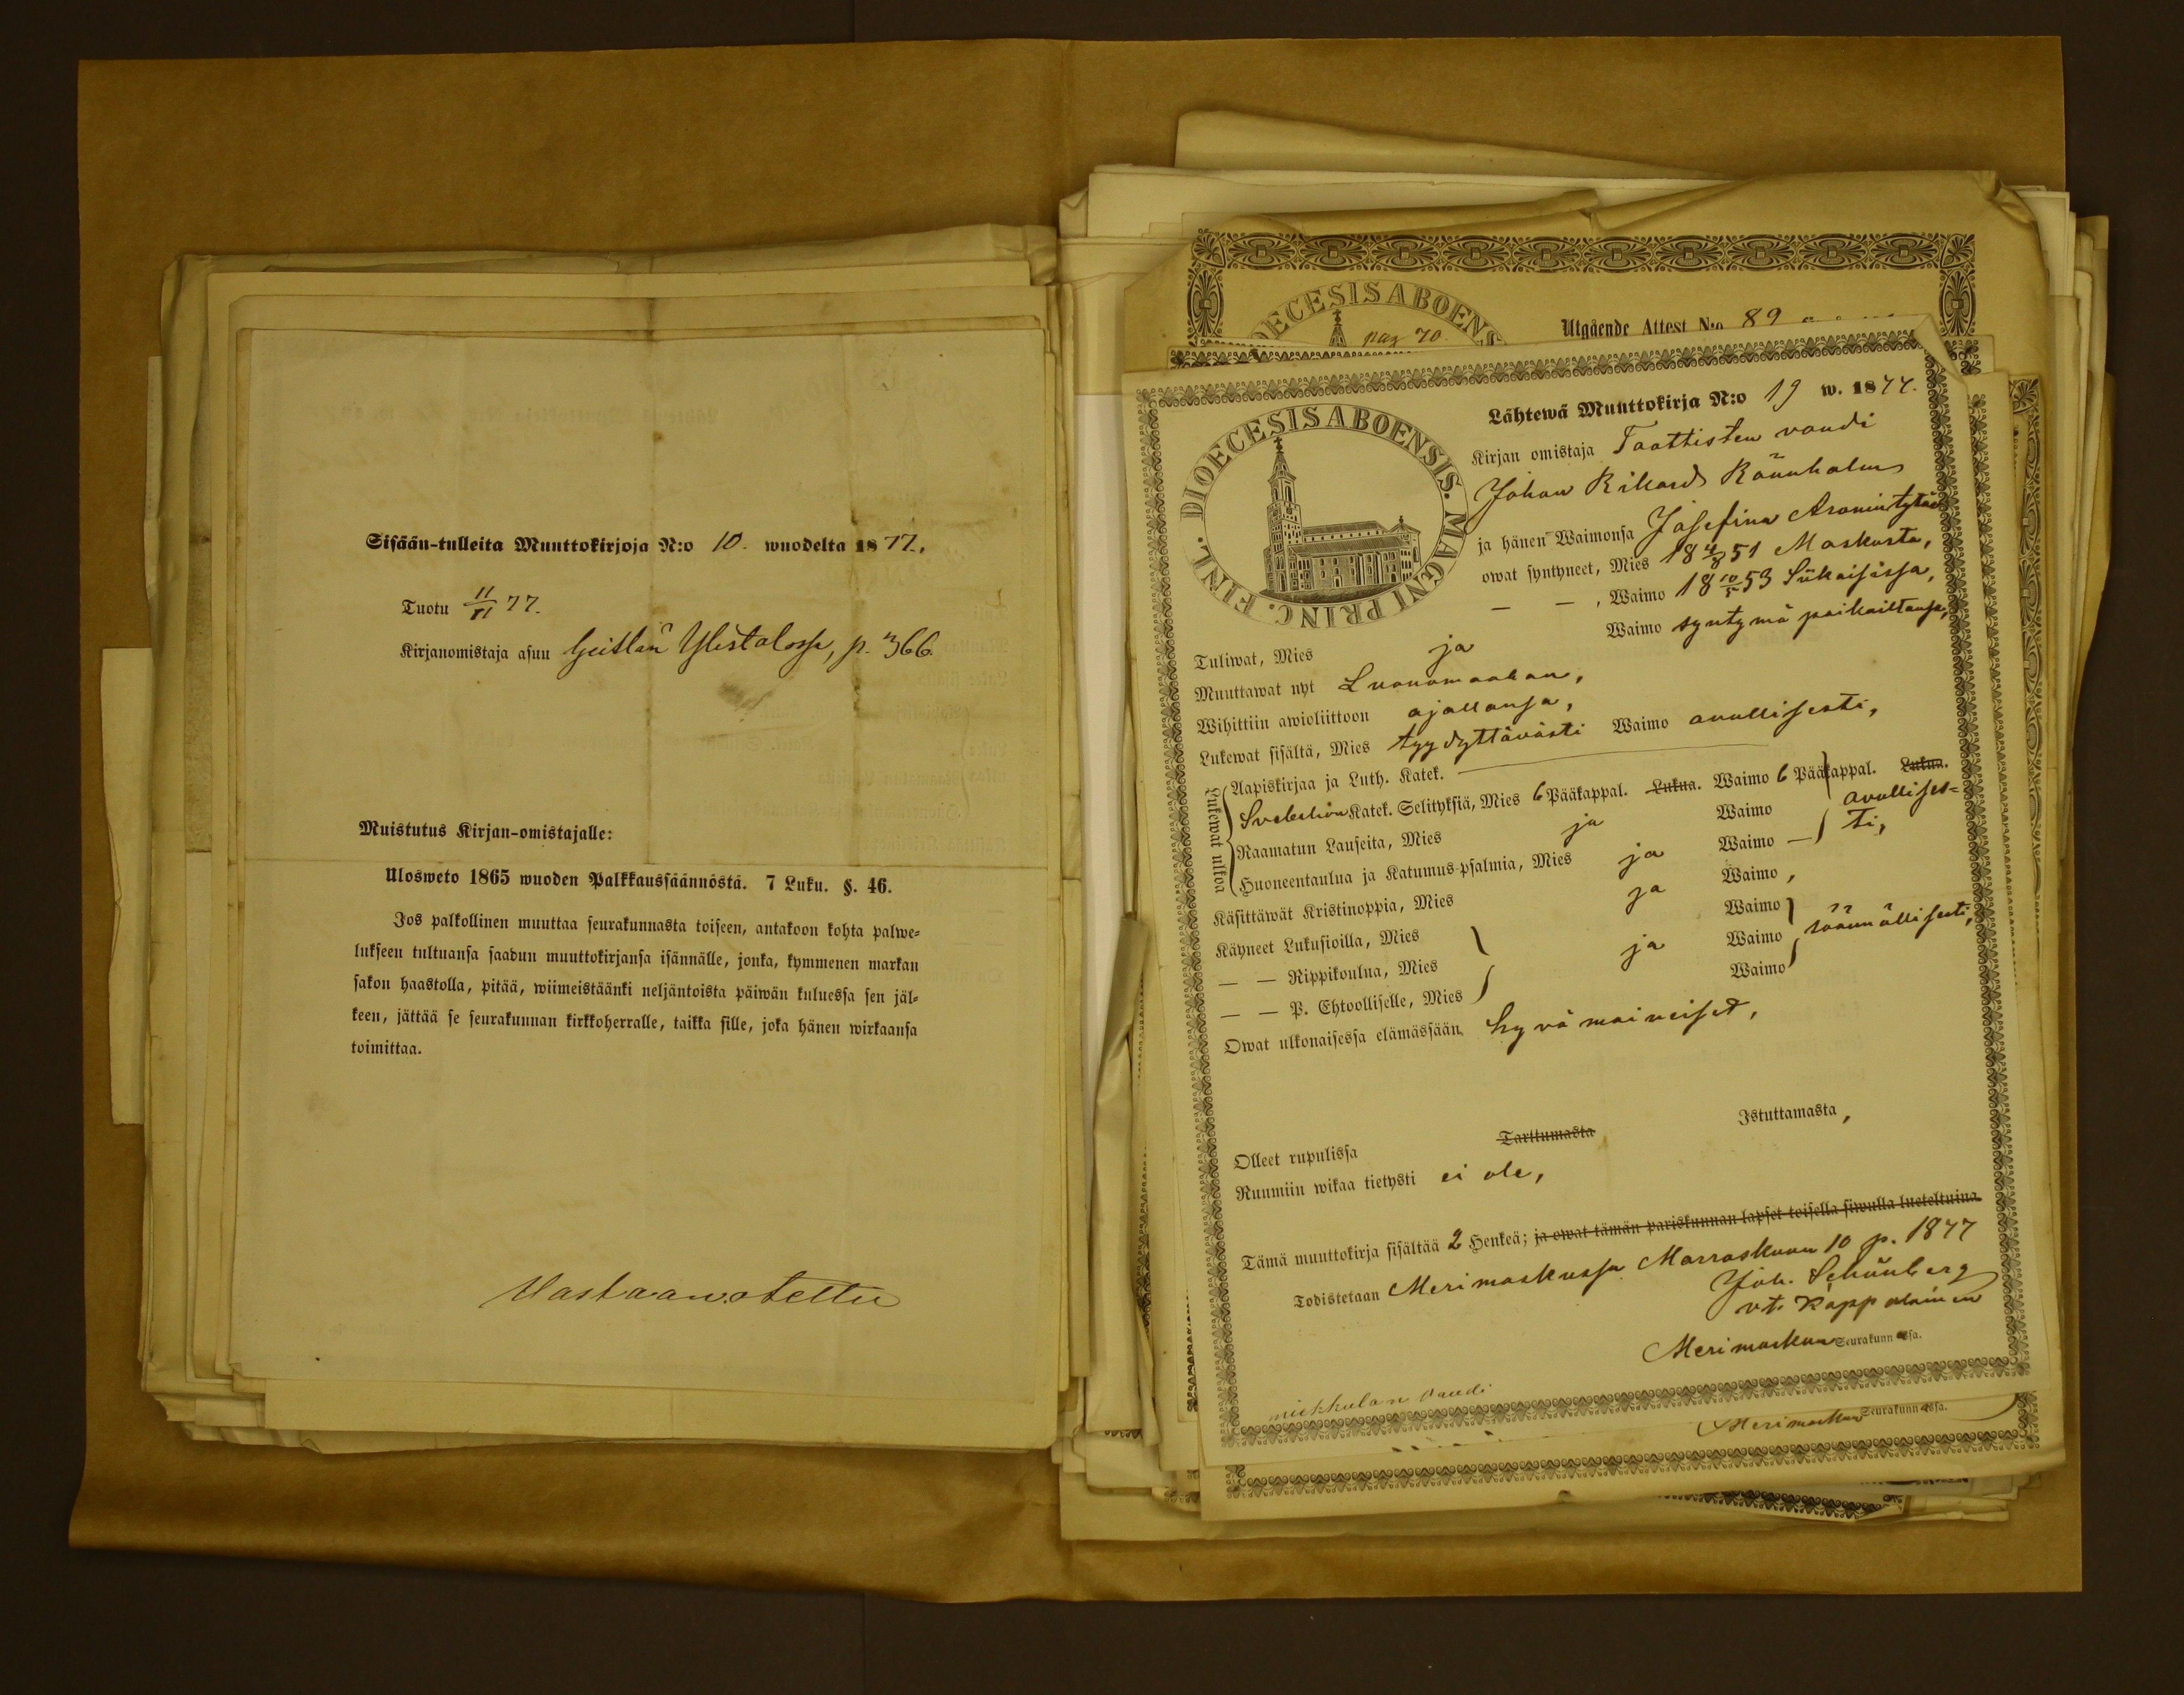 Sisään-tulleita Muuttokirjoja N:o 10. wuodelta 1877.
Tuotu 11/11 77.
Kirjanomistaja asuu Ylistalossa, p. 366.
Muistutus Kirjan-omistajalle:
Ulosweto 1865 wuoden Palkkaussäännöstä. 7 Luku. §. 46.
Jos palkollinen muuttaa seurakunnasta toiseen, antakoon kohta palwe=
lukseen tultuansa saadun muuttokirjansa isännälle, jonka, kymmenen markan
sakon haastolla, pitää, wiimeistäänki neljäntoista päiwän kuluessa sen jäl=
keen, jättää se seurakunnan kirkkoherralle, taikka sille, joka hänen wirkaansa
toimittaa.
Vastaanotettu
DIOECESIS ABOENS
pag 70.
Utgående Attest N:o 89
DIOECESIS ABOENSIS. MAGNI PRINC. FINL.
Lähtewä Muuttokirja N:o 19 w. 1877.
Kirjan omistaja Taattisten voudi
Johan Rikard Rönnholm
ja hänen Waimonsa Josefina Aronintytär
owat syntyneet, Mies 18 4/8 51 Maskusta,
— — , Waimo 18 10/5 53 Siikaisissa,
Tuliwat, Mies ja Waimo syntymä paikaltansa,
Muuttawat nyt Luonnmaahan,
Wihittiin awioliittoon ajallansa,
Lukewat sisältä, Mies tyydyttävästi Waimo avullisesti,
Lukewat ulkoa
Aapiskirjaa ja Luth. Katek.
Svebeliön Katek. Selityksiä, Mies 6 Pääkappal. Lukua. Waimo 6 Pääkappal. Lukua.
Raamatun Lauseita, Mies ja Waimo avullises=
Huoneentaulua ja Katumus-psalmia, Mies ja Waimo — ti,
Käsittäwät Kristinoppia, Mies ja Waimo ,
Käyneet Lukusioilla, Mies Waimo
— — Rippikoulua, Mies ja Waimo säännöllisesti,
— — P. Ehtoolliselle, Mies Waimo
Owat ulkonaisessa elämässään hyvämaineiset,
Olleet rupulissa Tarttumasta Istuttamasta,
Ruumiin wikaa tietysti ei ole,
Tämä muuttokirja sisältää 2 Henkeä; ja owat tämän pariskunnan lapset toisella siwulla lueteltuina.
Todistetaan Merimaskussa Marraskuun 10 p. 1877
Joh. Schönberg
vt. Kappalainen
Merimaskun Seurakunnassa.
miekkulan vaudi
Merimaskun Seurakunnassa.